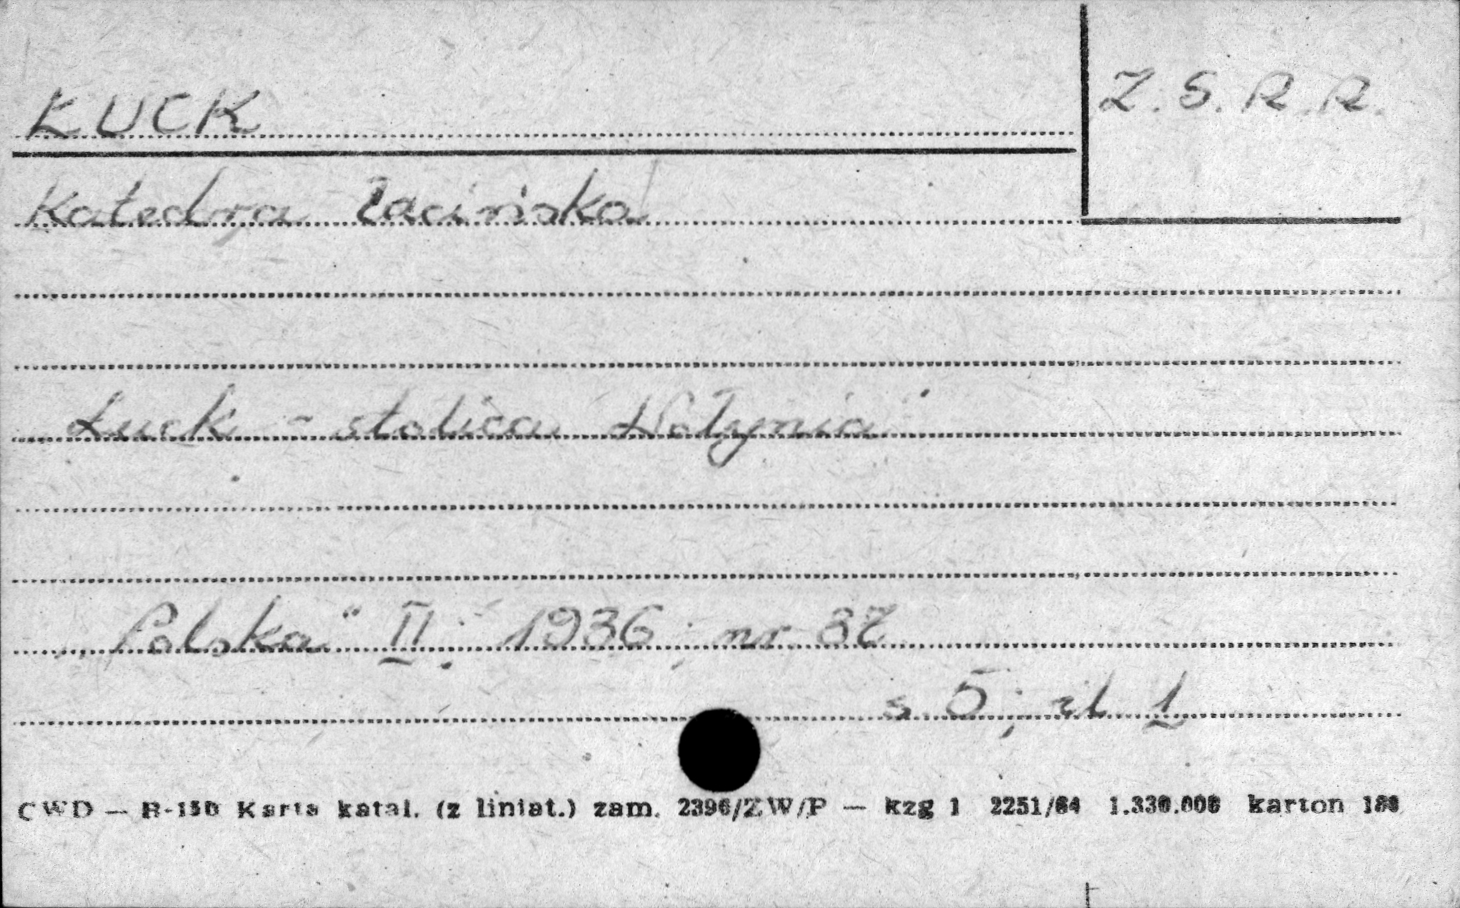 ŁUCK
Z.S.R.R.
Katedra łacińska
„Łuck - stolica Wołynia"
„Polska" II: 1936; nr 37
s 5; il 1
CWD — B-150 Karta katal. (z liniat.) zam. 2396/ZW/P — kzg 1 2251/84 1.330.000 karton 180